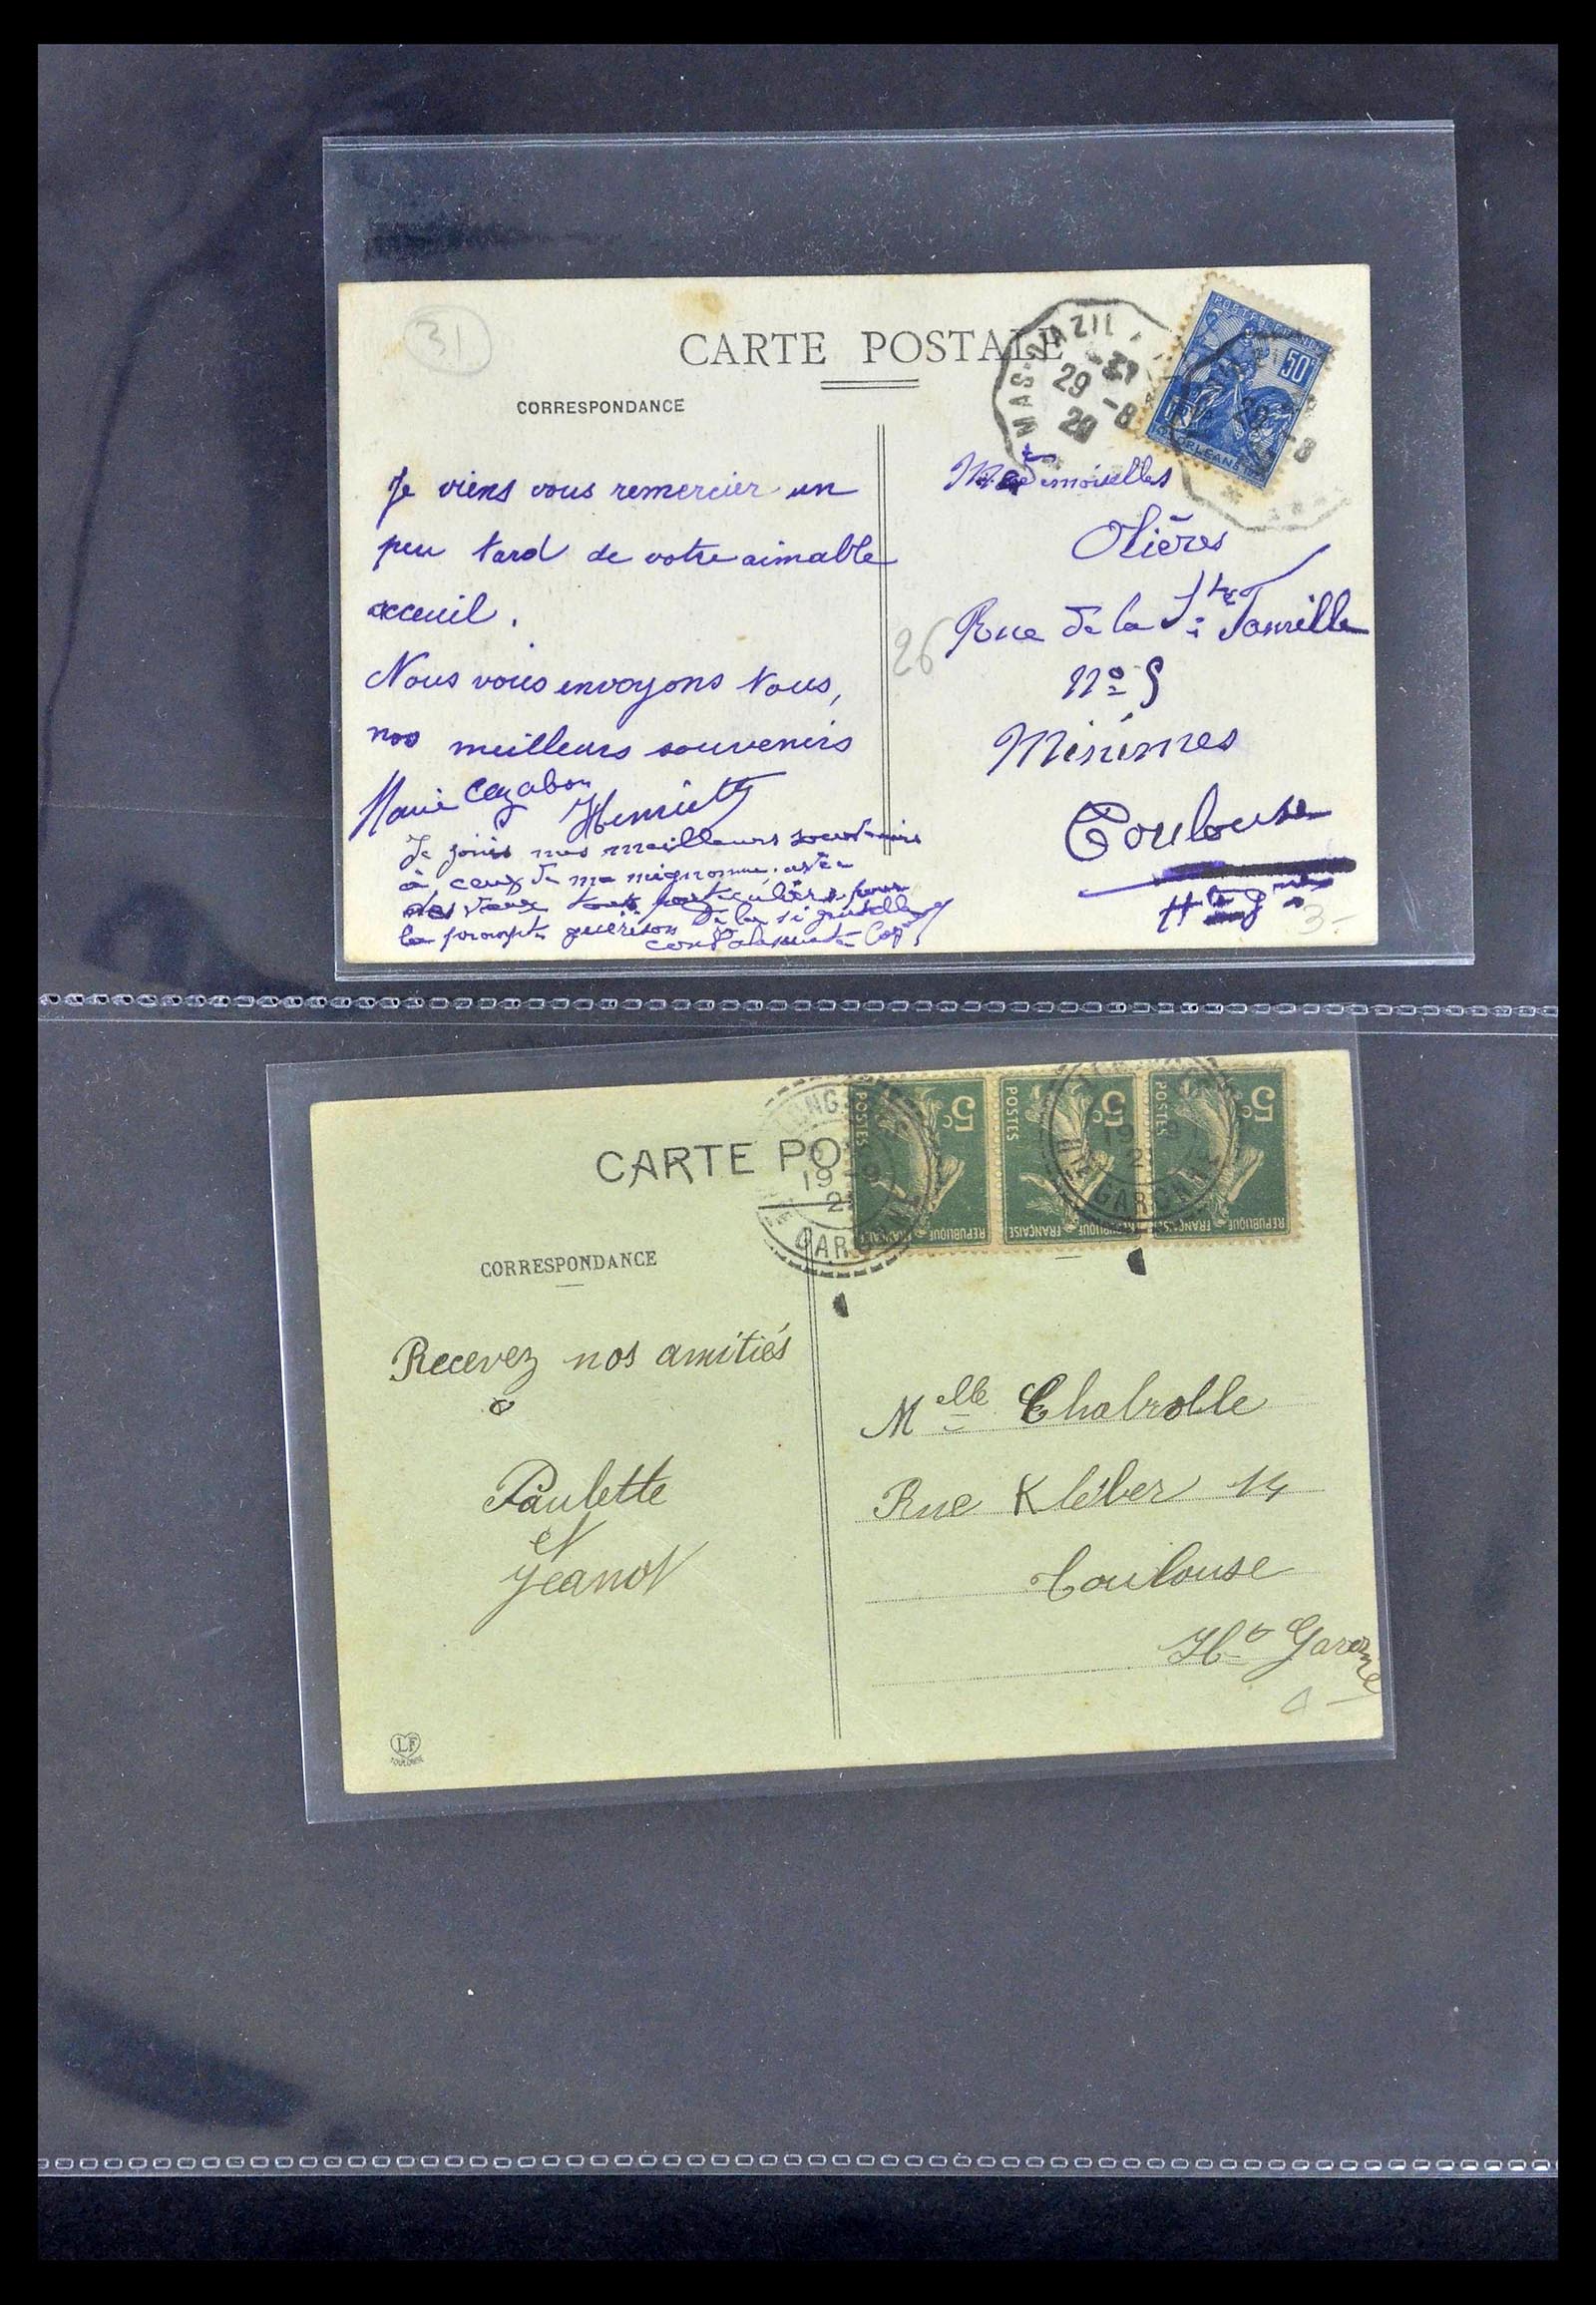 31
CARTE POSTALE
CORRESPONDANCE
MAS-D'AZIL
29 -8
29
POSTES FRANCE
50c
ORLEANS
Je viens vous remercier un
peu tard de votre aimable
acceuil.
Nous vous envoyons tous,
nos meilleurs souvenirs
Marie Cazabon
Henriette
Je joins mes meilleurs souvenirs
à ceux de ma mignonne, avec
des vœux tout particuliers pour
la prompte guérison de la si gentille
convalescente
Mesdemoiselles
Olières
Rue de la Ste Famille
26
No 9
Minimes
Toulouse
Hte Gne
3-
CARTE PO
CORRESPONDANCE
LONG
19 -9
2
GARONNE
5c
POSTES
REPUBLIQUE FRANÇAISE
5c
POSTES
REPUBLIQUE FRANÇAISE
5c
POSTES
REPUBLIQUE FRANÇAISE
19
2
HTE GARONNE
Recevez nos amitiés
Paulette
et
Jeanot
Melle Chabrolle
Rue Kléber 14
Toulouse
Hte Garonne
LF
TOULOUSE